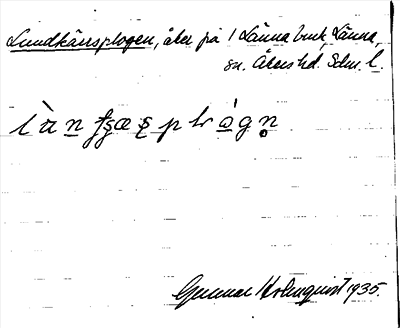 Lundkärrsplogen, åker på 1 Länna by, Länna
sn. Åkers hd. Sdm. l.
Gunnar Holmquist 1935.